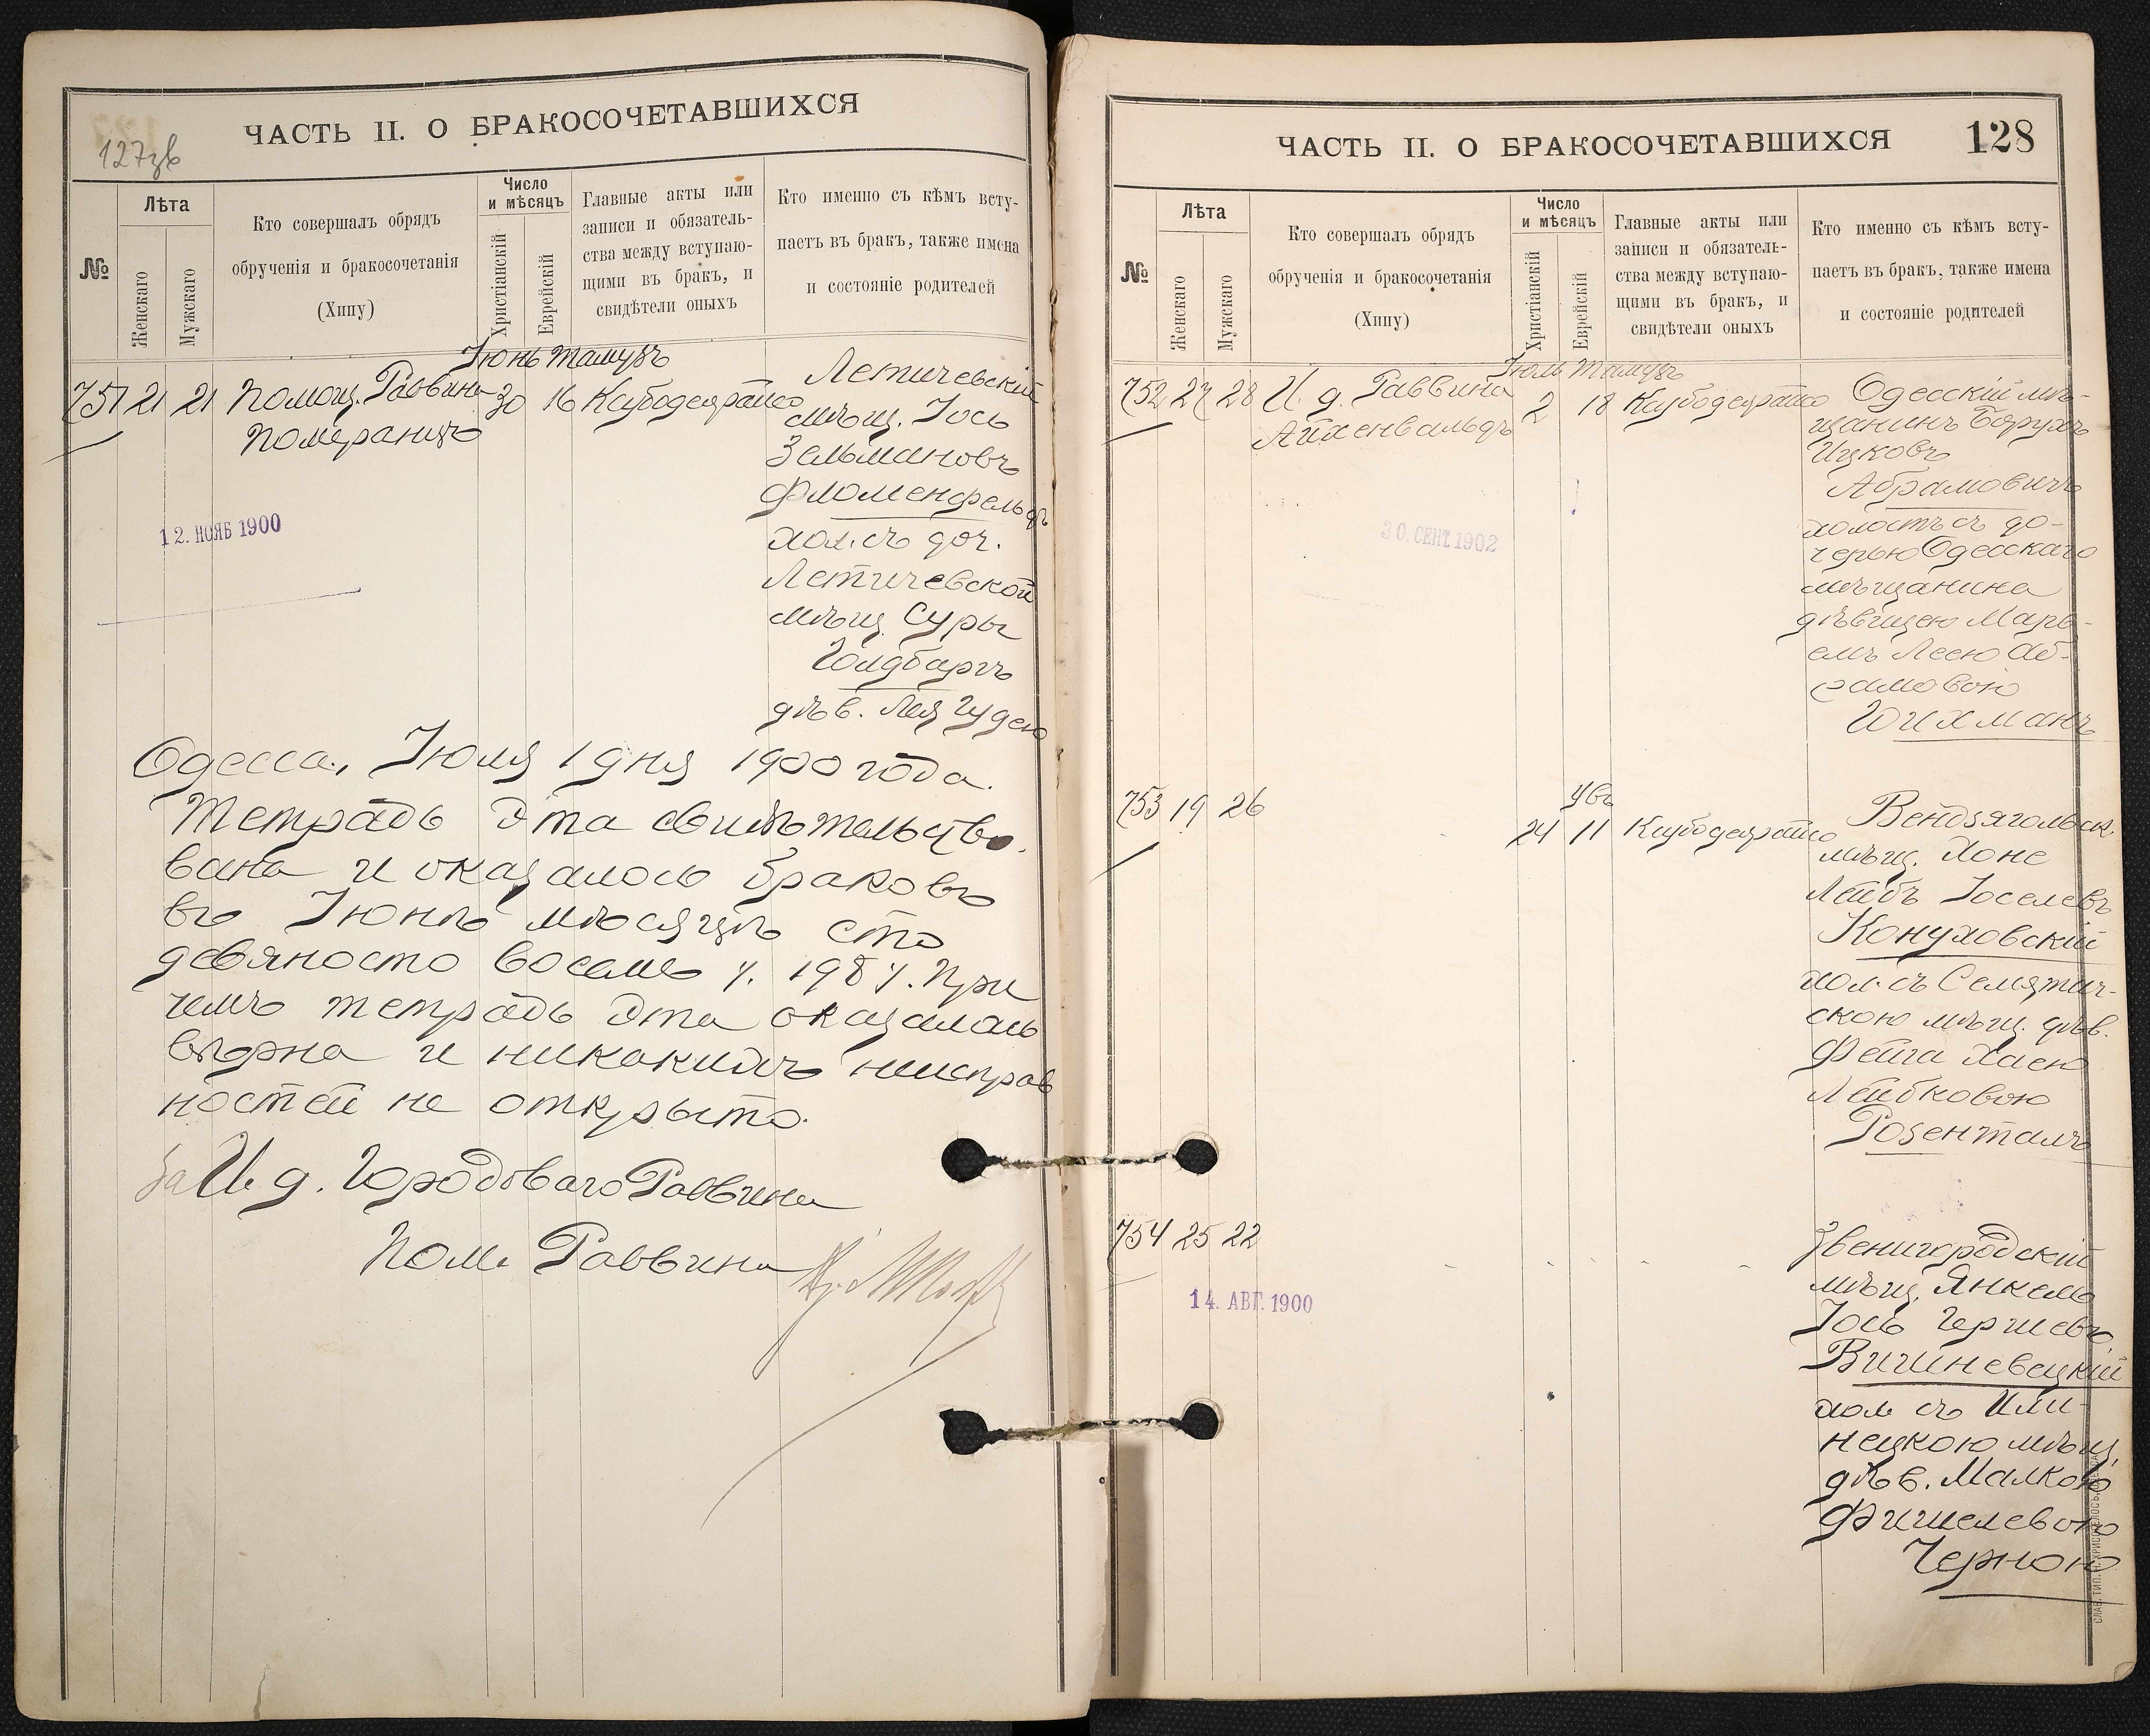 ЧАСТЬ II. О БРАКОСОЧЕТАВШИХСЯ
127зв
№
Лѣта
Женскаго
Мужскаго
Кто совершалъ обрядъ
обрученія и бракосочетанія
(Хипу)
Число
и мѣсяцъ
Христіанскій
Еврейскій
Главные акты или
записи и обязатель-
ства между вступаю-
щими въ бракъ, и
свидѣтели оныхъ
Кто именно съ кѣмъ всту-
паетъ въ бракъ, также имена
и состояніе родителей
Іюнь Тамузъ
751 21 21 Помощ. Раввина 30 16
Померанцъ
Летичевскій
мѣщ. Іось
Зельмановъ
Фломенфельдъ
хол. съ доч.
Летичевской
мѣщ. Суры
Голдбаргъ
дѣв.
12. НОЯБ 1900
Одесса, Іюля 1 дня 1900 года.
Тетрадь эта
вана и оказалось браковъ
въ Іюнѣ мѣсяцѣ сто
девяносто восемь /. 198 /. При
чемъ тетрадь эта оказалась
вѣрна и никакихъ неисправ
ностей не открыто.
За И. д. Городоваго Раввина
Пом. Раввина
ЧАСТЬ II. О БРАКОСОЧЕТАВШИХСЯ
128
№
Лѣта
Женскаго
Мужскаго
Кто совершалъ обрядъ
обрученія и бракосочетанія
(Хипу)
Число
и мѣсяцъ
Христіанскій
Еврейскій
Главные акты или
записи и обязатель-
ства между вступаю-
щими въ бракъ, и
свидѣтели оныхъ
Кто именно съ кѣмъ всту-
паетъ въ бракъ, также имена
и состояніе родителей
Іюль Тамузъ
752 27 28 И. д. Раввина 2 18
Айхенвальдъ
Одесскій мѣ-
щанинъ Борухъ
Ицковъ
Абрамовичъ
холостъ съ до-
черью Одесскаго
мѣщанина
дѣвицею Марь-
емъ Леею Аб-
рамовою
Шихманъ
30. СЕНТ. 1902
753 19 26 24 11
Вендзягольск.
мѣщ. Хоне
Лейбъ Іоселевъ
Конуховскій
хол. съ Семятич-
скою мѣщ. дѣв.
Фейга Хаею
Лейбковою
Розенталь
754 25 22
14. АВГ. 1900
Звенигородскій
мѣщ. Янкель
Іось Гершевъ
Вишневецкій
хол. съ Или-
нецкою мѣщ.
дѣв. Малкою
Фишелевою
Черною